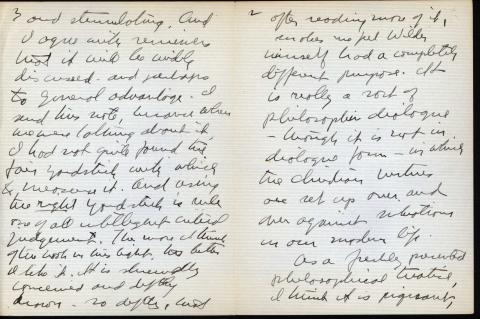 3 and stimulating. And
I agree with reviewers
that it will be widly
discussed. and perhaps
to general advantage. I
send this note, because when
we were talking about it,
I had not quite found the
yardstick with which
to measure it. And using
the right yardstick is rule
one of all intelligent critical
judgement. The more I think
of the book in this light, the better
I like it. It is shrewdly
conceived and deftly
drawn - so deftly, that
2 after reading more of it,
makes me feel Wilder
himself had a completely
different purpose. It
is really a sort of
philosophic dialogue
- though it is not in
dialogue form - in which
the Christian virtues
are set up over and
over against situations
in our modern life.
As a freely presented
philosophical treatise,
I think it is vigorous,